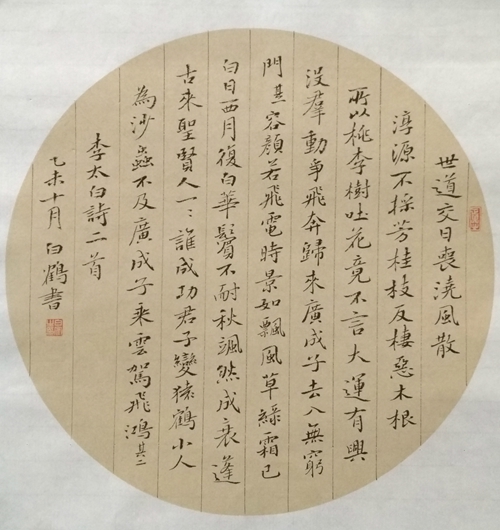 世道交日喪澆風散
淳源不採芳桂枝反棲惡木根
所以桃李樹吐花竟不言大運有興
沒羣動爭飛奔歸來廣成子去入無窮
門其一容顏若飛電時景如飄風草綠霜已
白日西月復白華鬢不耐秋颯然成衰蓬
古來聖賢人一一誰成功君子變猿鶴小人
為沙蟲不及廣成子乘雲駕飛鴻其二
李太白詩二首
乙未十月白鶴書